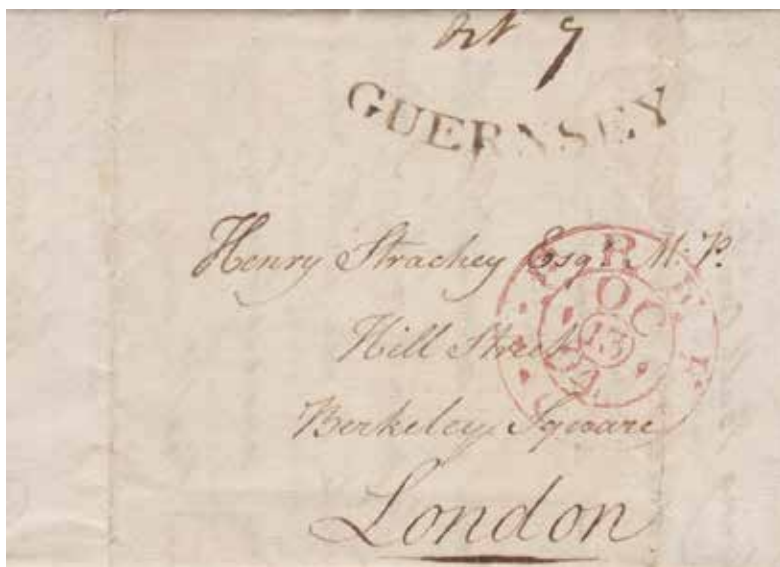 7
GUERNSEY
Henry Strachey Esqr. M:P.
Hill Street
Berkeley Square
London
OC
13
94